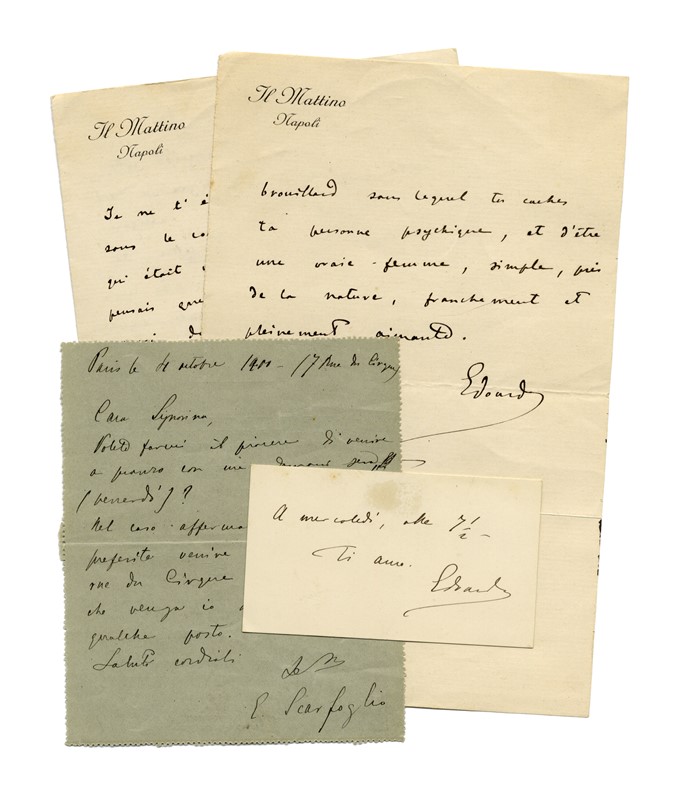 Il Mattino
Napoli
Je ne t'é
sous le
qui était
pensais que
Il Mattino
Napoli
brouillard sous lequel tu caches
ta personne psychique, et d'être
une vraie femme, simple, près
de la nature, franchement et
pleinement aimante.
Edoardo
Paris le 4 octobre (7 Rue du Cirque)
Cara Signorina,
Volete farmi il piacere di venire
a pranzo con me
(venerdì)?
Nel caso afferma
preferite venire
rue du Cirque
che venga io
qualche posto.
Saluti cordiali
E Scarfoglio
A mercoledì, alle 7 1/2 -
Ti amo.
Edoardo